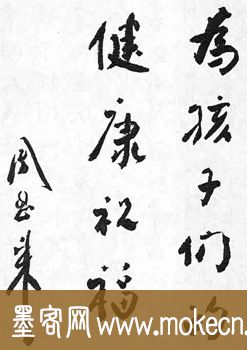 為孩子们的
健康祝福
周思来
墨客网 www.mokecn.